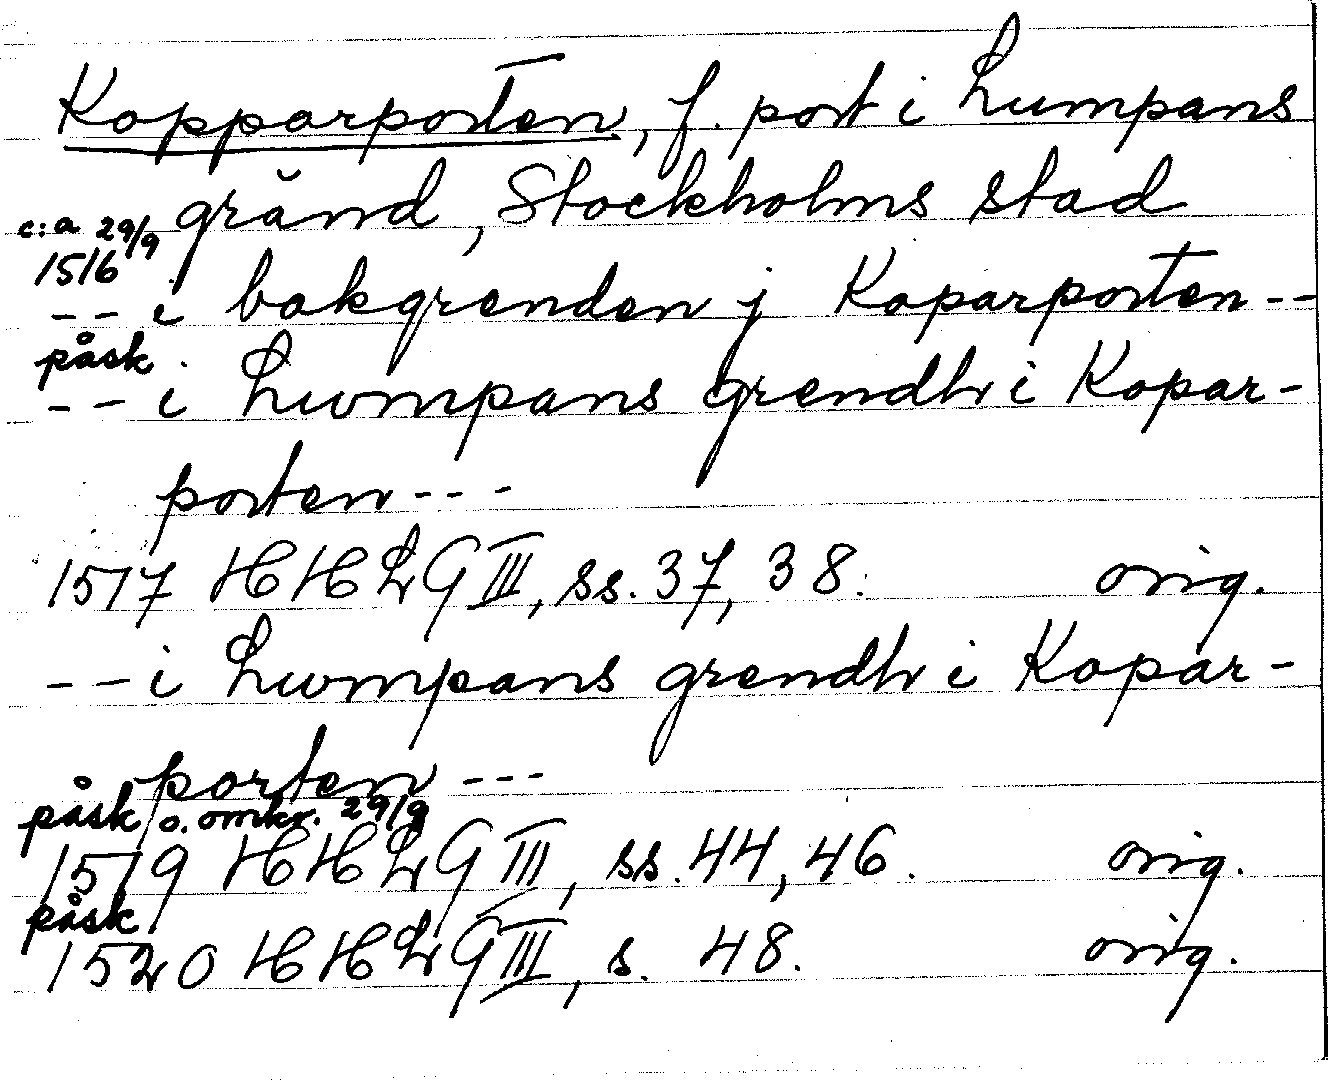 Kopparporten, f. port i Lumpans
gränd, Stockholms stad
c:a 29/9
1516
-- i bakgrenden j Koparporten --
påsk
-- i Lwmpans grendh i Kopar-
porten ---
1517 HHLG III, ss. 37, 38. orig.
-- i Lwmpans grendh i Kopar-
porten ---
påsk o. omkr. 29/9
1519 HHLG III, ss. 44, 46. orig.
påsk
1520 HHLG III, s. 48. orig.